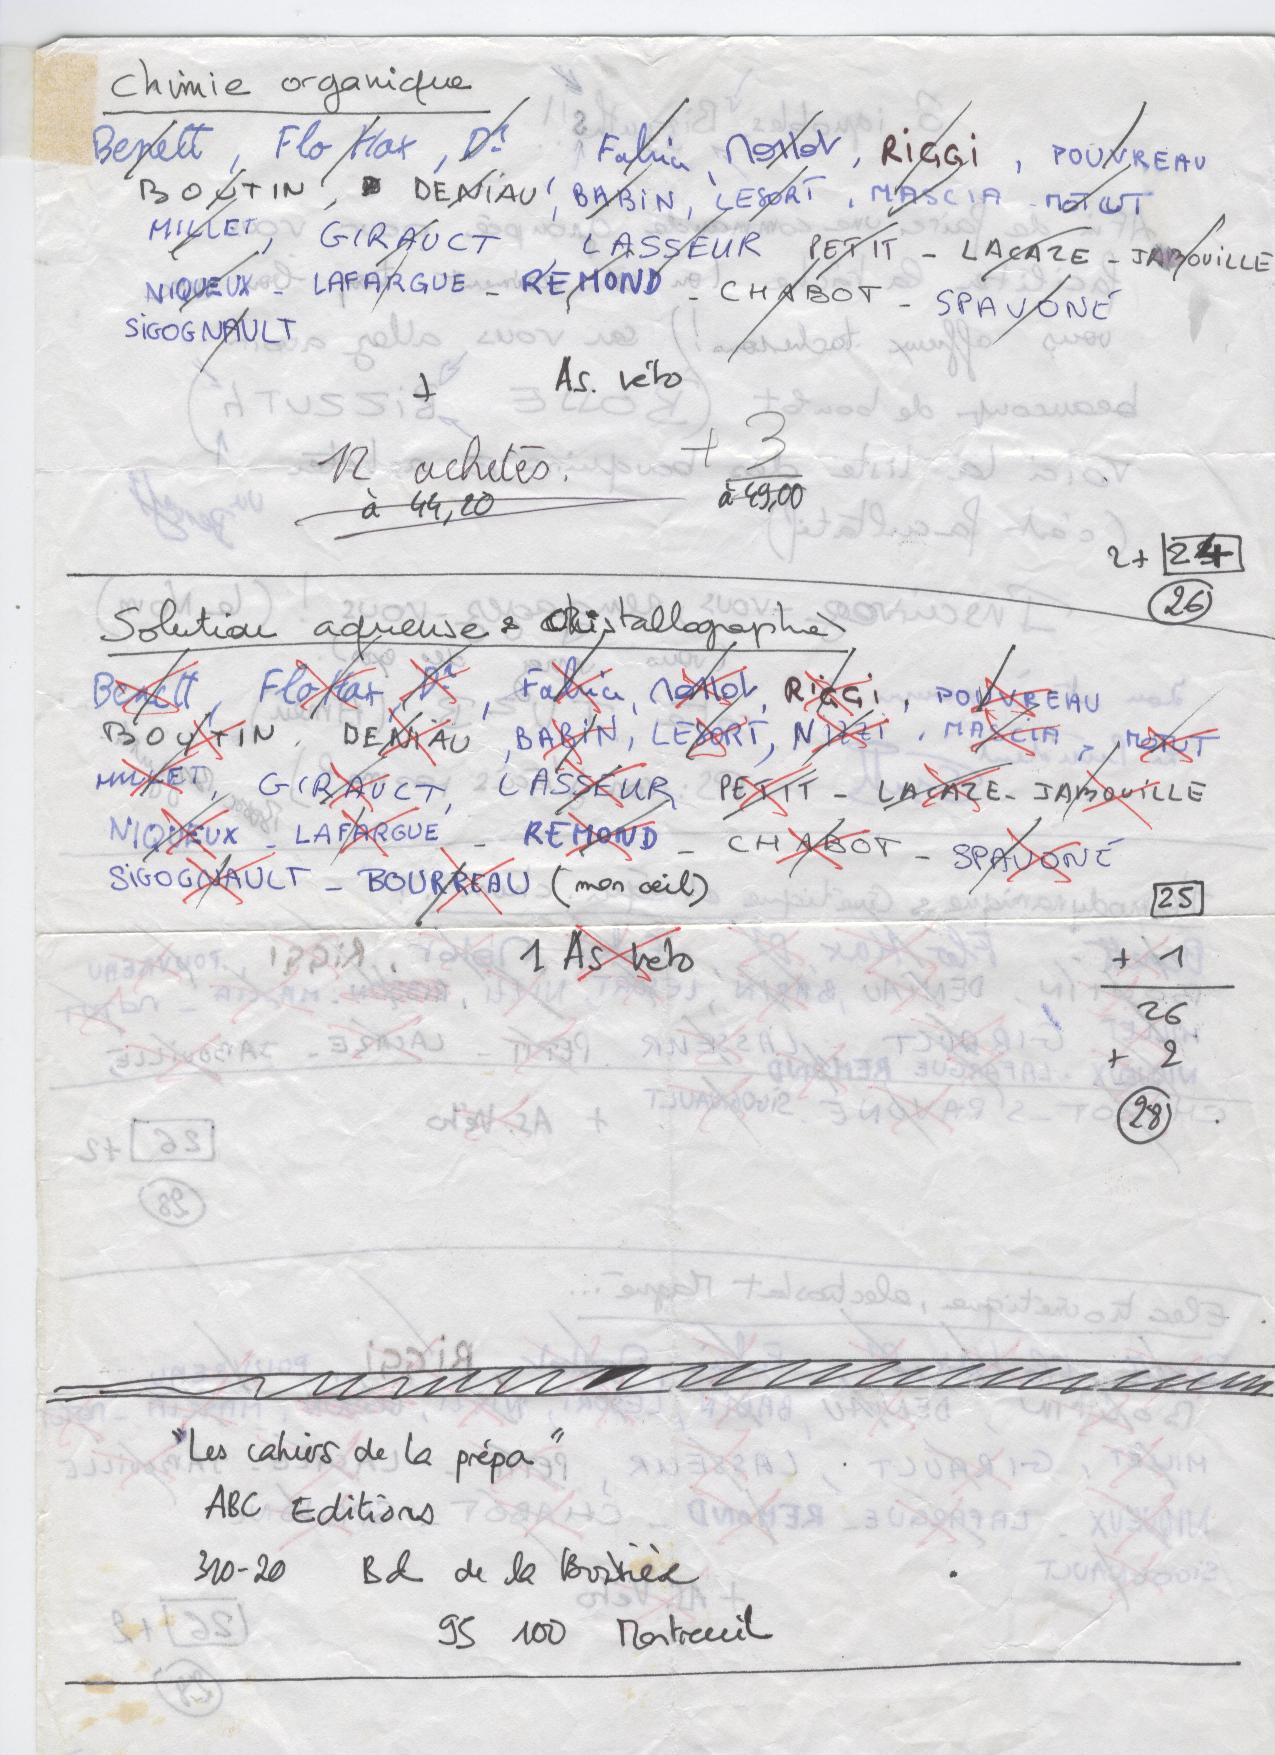 Chimie organique
Benett, Flo Max, Dr Fabrice, Nollot, RIGGI, POUVREAU
BOUTIN, DENIAU, BABIN, LESORT, MASCIA - MOTUT
MILLET, GIRAUCT LASSEUR PETIT - LACAZE - JABOUILLE
NIQUEUX - LAFARGUE - REMOND - CHABOT - SPAVONE
SIGOGNAULT
+ As. véto
12 achetés. + 3
à 44,20 à 49,00
2 + 24
26
Solution aqueuse & Cristallographie
Benett, Flo Max, Dr, Fabrice, RIGGI, POUVREAU
BOUTIN, DENIAU, BABIN, LESORT, NIZZI, MASCIA, MOTUT
MILLET, GIRAUCT, LASSEUR PETIT - LACAZE - JABOUILLE
NIQUEUX - LAFARGUE - REMOND - CHABOT - SPAVONE
SIGOGNAULT - BOURREAU (mon oeil)
25
1 As véto + 1
26
+ 2
28
"Les cahiers de la prépa"
ABC Editions
310-20 Bd de la Boissière
95 100 Montreuil